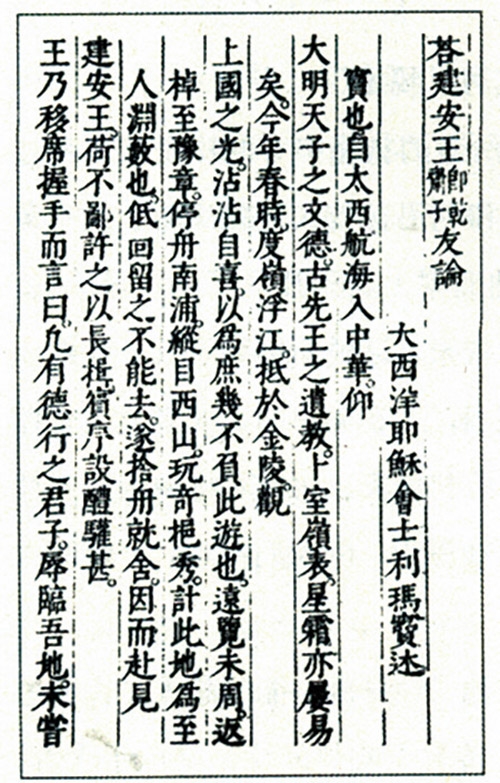 荅建安王即乾齋子友論
大西洋耶穌會士利瑪竇述
竇也。自太西航海入中華。仰
大明天子之文德。古先王之遺教。卜室嶺表。星霜亦屢易
矣。今年春時。度嶺浮江。抵於金陵。觀
上國之光。沾沾自喜。以爲庶幾不負此遊也。遠覽未周。返
棹至豫章。停舟南浦。縱目西山。玩奇挹秀。計此地爲至
人淵藪也。低回留之。不能去。遂捨舟就舍。因而赴見
建安王。荷不鄙許之以長揖。賓序設醴驩甚。
王乃移席握手而言曰。凡有德行之君子。辱臨吾地。未嘗